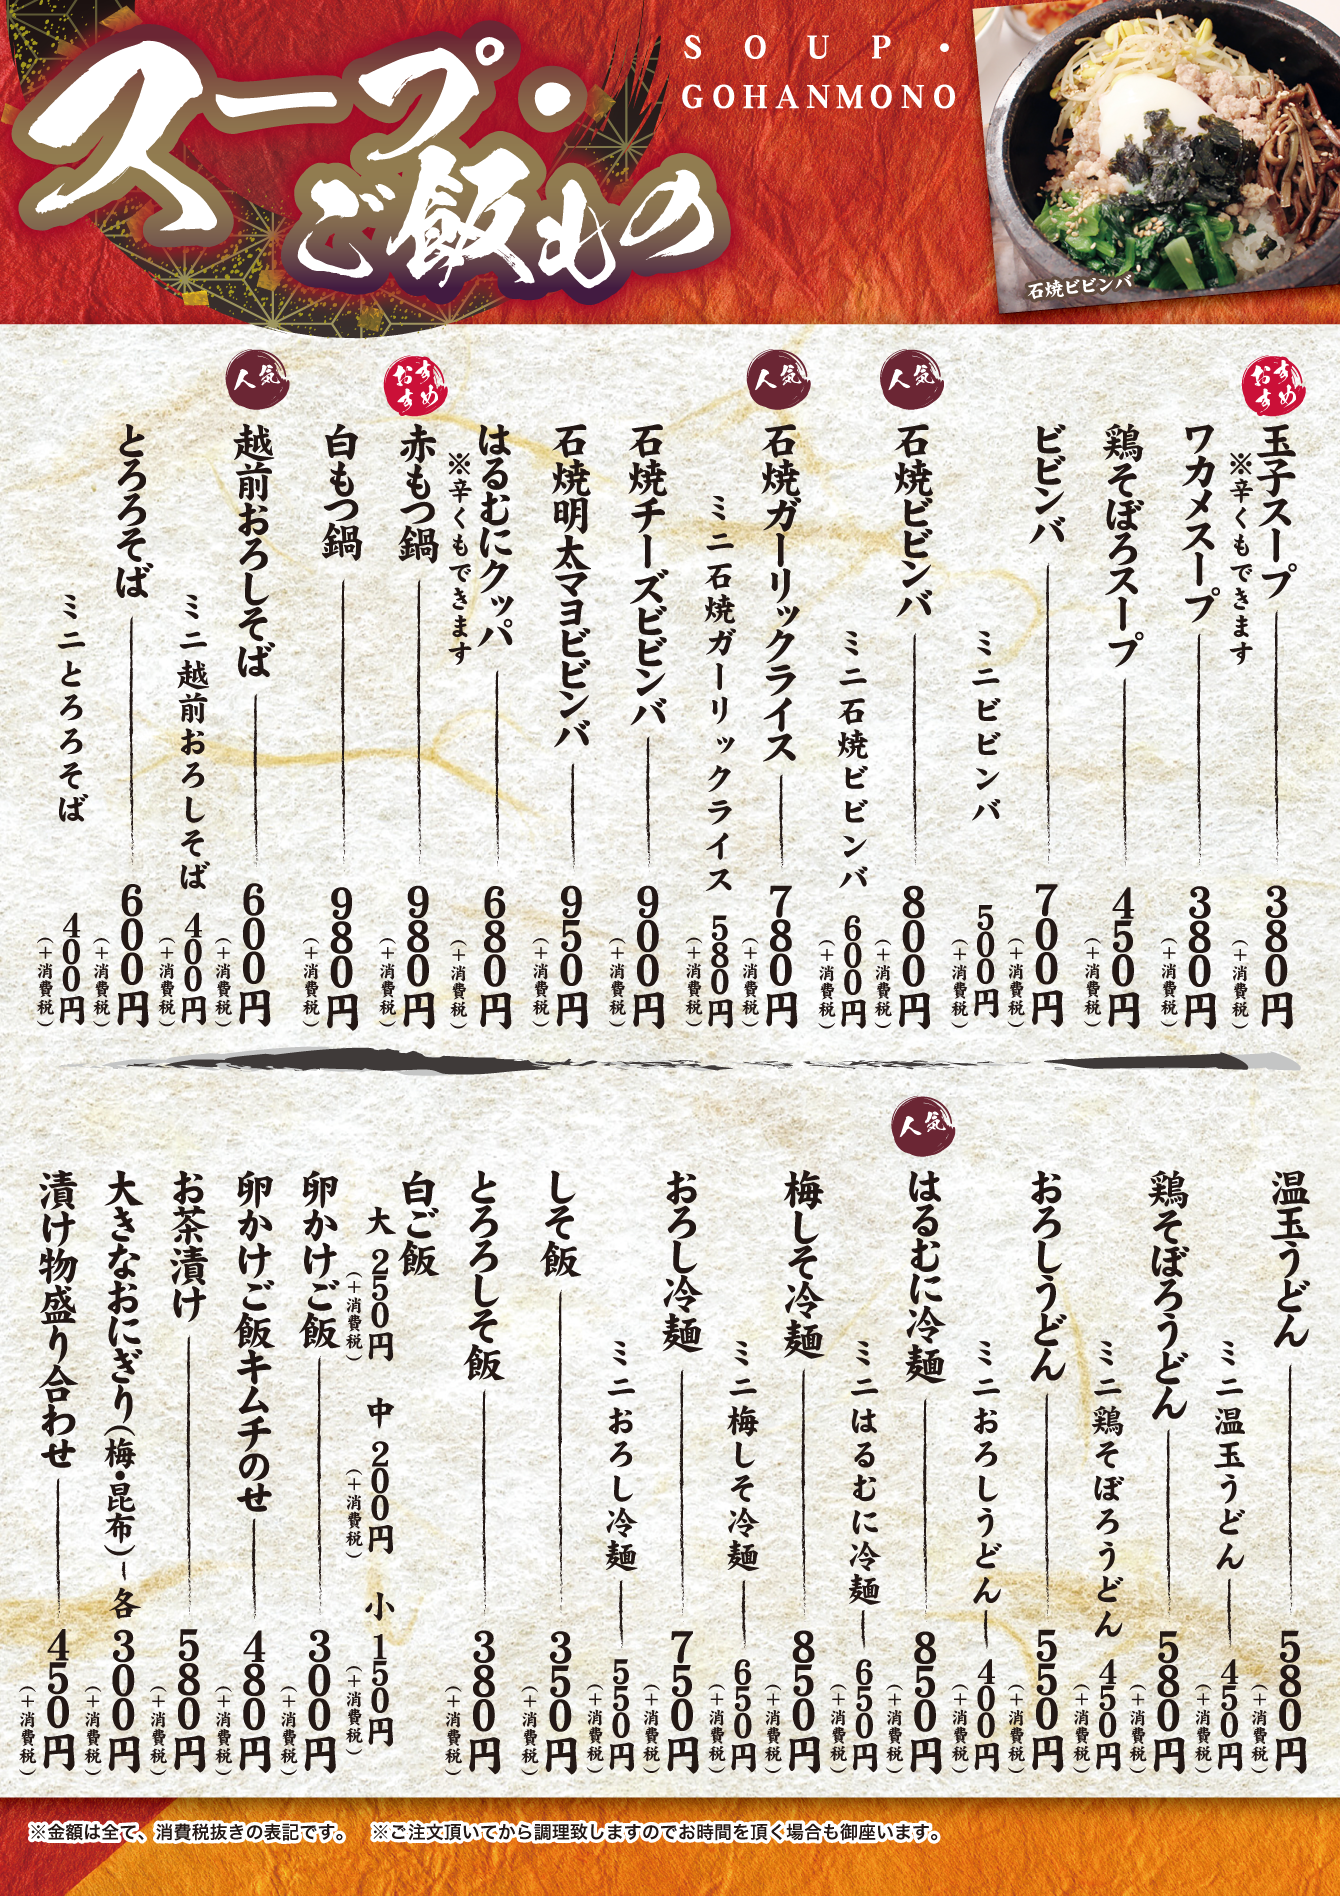 スープ・
ご飯もの
SOUP・
GOHANMONO
石焼ビビンバ
おすすめ
玉子スープ 380円(+消費税)
※辛くもできます
ワカメスープ 380円(+消費税)
鶏そぼろスープ 450円(+消費税)
ビビンバ 700円(+消費税)
ミニビビンバ 500円(+消費税)
人気
石焼ビビンバ 800円(+消費税)
ミニ石焼ビビンバ 600円(+消費税)
人気
石焼ガーリックライス 780円(+消費税)
ミニ石焼ガーリックライス 580円(+消費税)
石焼チーズビビンバ 900円(+消費税)
石焼明太マヨビビンバ 950円(+消費税)
はるむにクッパ 680円(+消費税)
※辛くもできます
おすすめ
赤もつ鍋 980円(+消費税)
白もつ鍋 980円(+消費税)
人気
越前おろしそば 600円(+消費税)
ミニ越前おろしそば 400円(+消費税)
とろろそば 600円(+消費税)
ミニとろろそば 400円(+消費税)
温玉うどん 580円(+消費税)
ミニ温玉うどん 450円(+消費税)
鶏そぼろうどん 580円(+消費税)
ミニ鶏そぼろうどん 450円(+消費税)
おろしうどん 550円(+消費税)
ミニおろしうどん 400円(+消費税)
人気
はるむに冷麺 850円(+消費税)
ミニはるむに冷麺 650円(+消費税)
梅しそ冷麺 850円(+消費税)
ミニ梅しそ冷麺 650円(+消費税)
おろし冷麺 750円(+消費税)
ミニおろし冷麺 550円(+消費税)
しそ飯 350円(+消費税)
とろろしそ飯 380円(+消費税)
白ご飯
大 250円(+消費税) 中 200円(+消費税) 小 150円(+消費税)
卵かけご飯 300円(+消費税)
卵かけご飯キムチのせ 480円(+消費税)
お茶漬け 580円(+消費税)
大きなおにぎり(梅・昆布) 各300円(+消費税)
漬け物盛り合わせ 450円(+消費税)
※金額は全て、消費税抜きの表記です。 ※ご注文頂いてから調理致しますのでお時間を頂く場合も御座います。